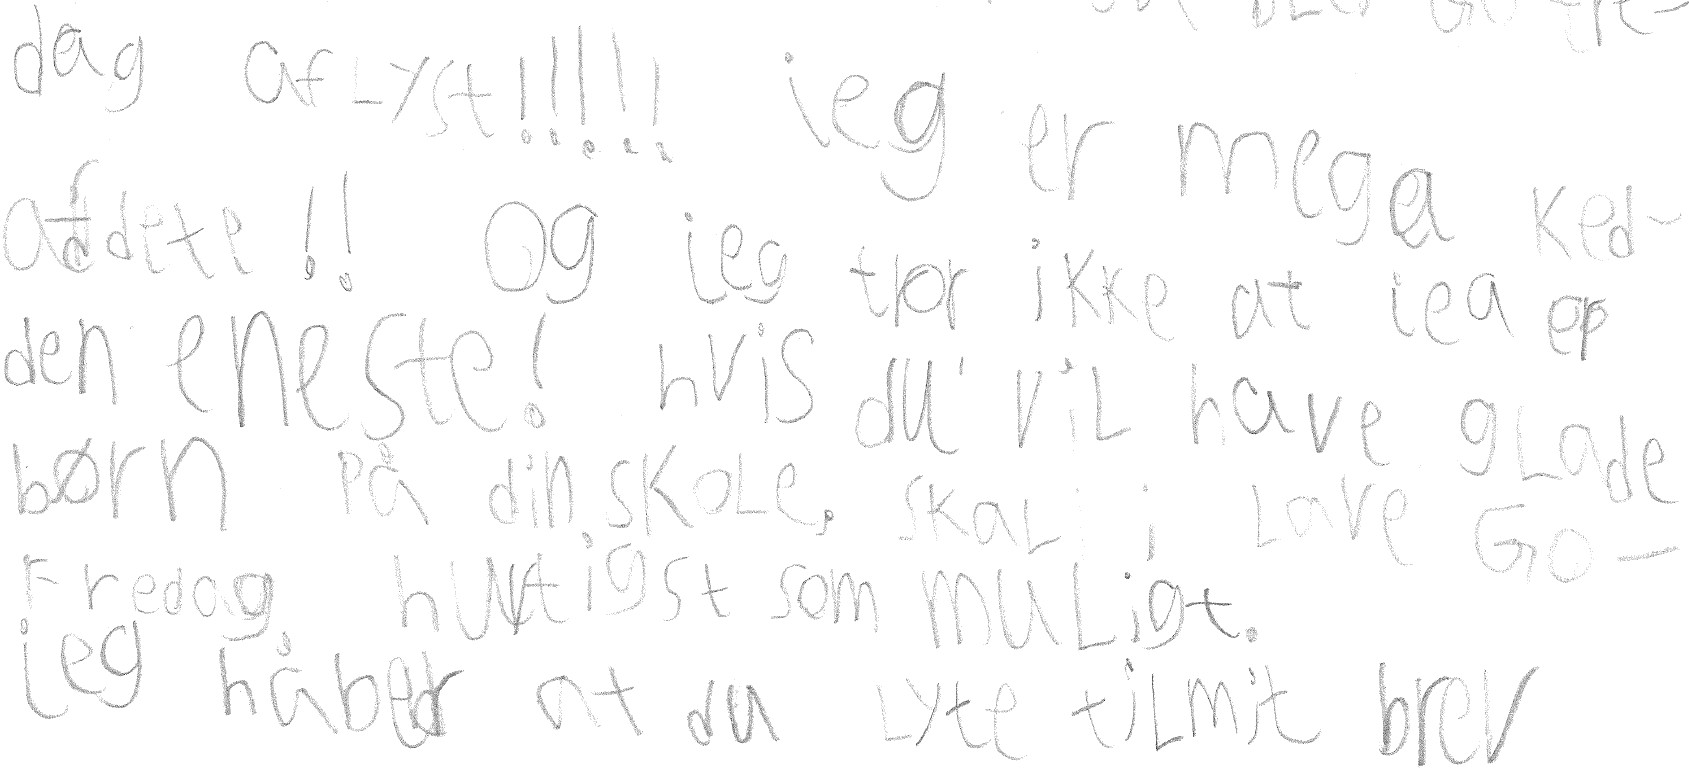 BLEV GO fre-
dag afLyst!!!!! jeg er mega Ked-
afdete !! Og jeg tror iKKe at jeg er
den eneste! hvis du viL have gLade
børn på din SKoLe, SKaL i Lave GO-
Fredag hurtigst som muLigt.
jeg håber at du Lyte tiL mit brev